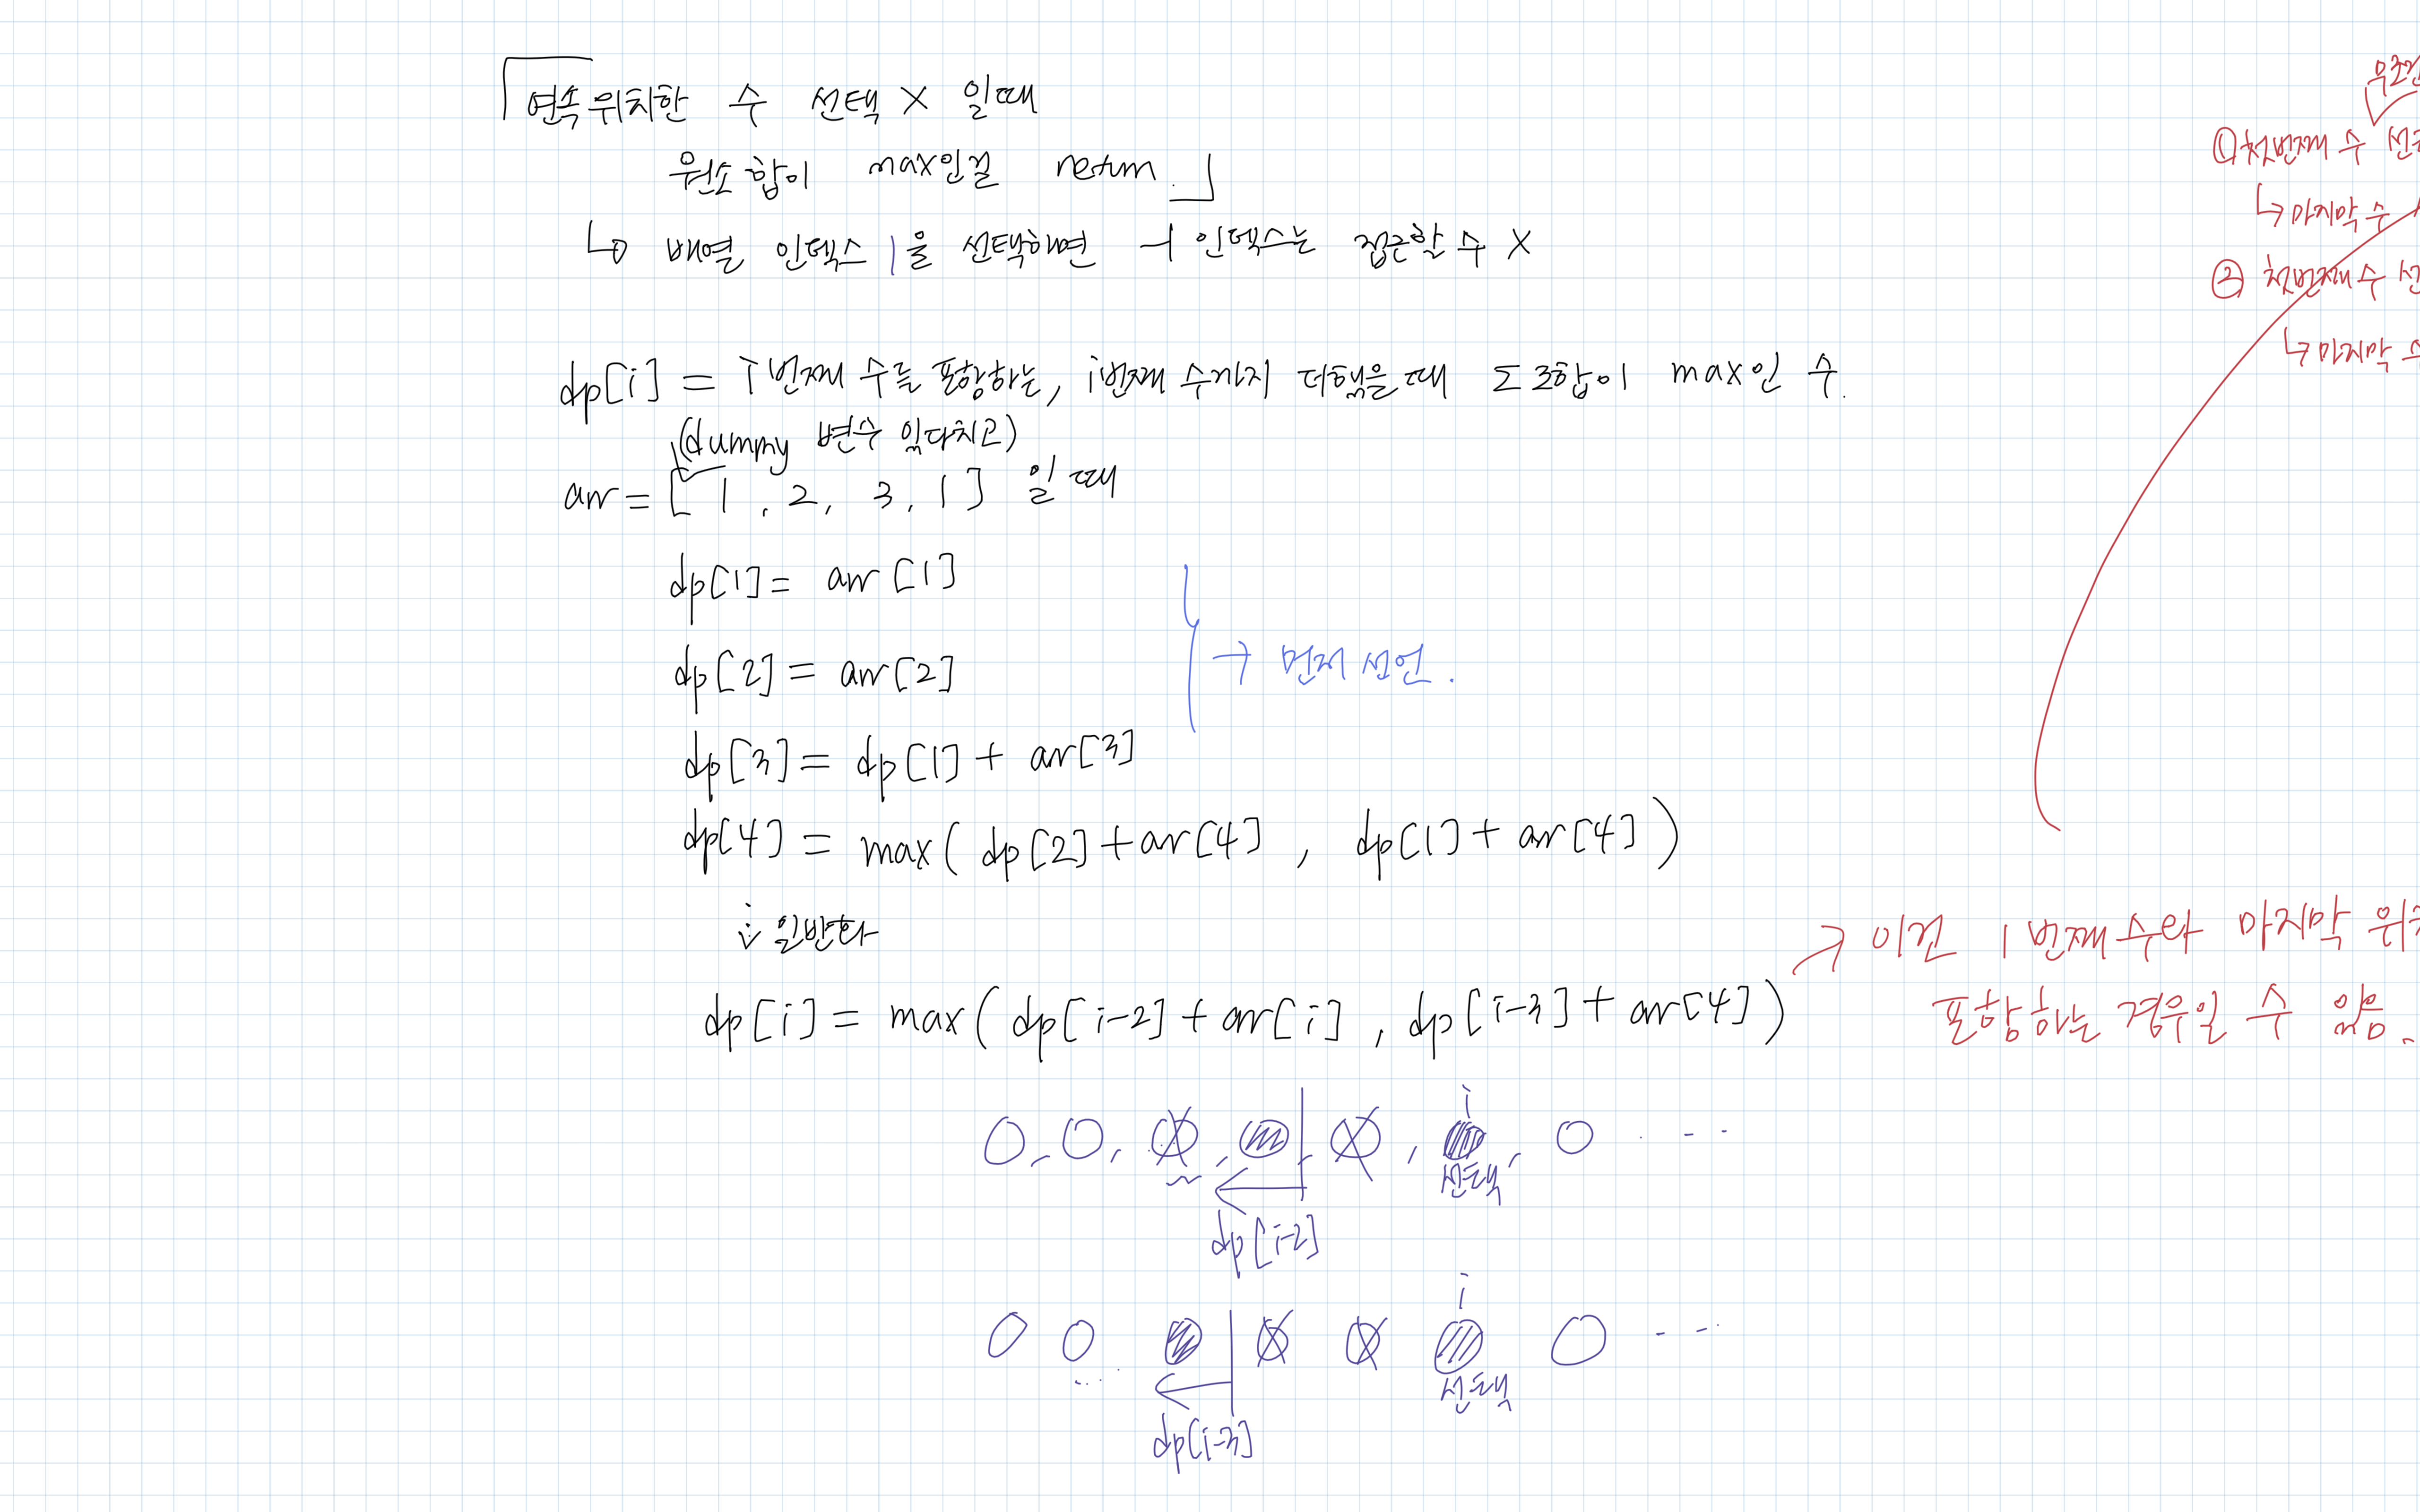 「연속 위치한 수 선택 X 일때
원소 합이 max인걸 return.」
↳ 배열 인덱스 1을 선택하면 -1 인덱스는 접근할 수 X
dp[i] = i번째 수를 포함하는, i번째 수까지 더했을때 조합이 max인 수.
(dummy 변수 있다치고)
arr = [ 1, 2, 3, 1 ] 일 때
dp[1] = arr[1]
dp[2] = arr[2]
→ 먼저 선언.
dp[3] = dp[1] + arr[3]
dp[4] = max( dp[2] + arr[4] , dp[1] + arr[4] )
일반화
dp[i] = max( dp[i-2] + arr[i] , dp[i-3] + arr[4] )
→ 이건 1번째 수와 마지막
포함하는 경우일 수 있음.
i
선택
dp[i-2]
i
선택
dp[i-3]
① 첫번째 수
↳ 마지막 수
② 첫번째 수
↳ 마지막